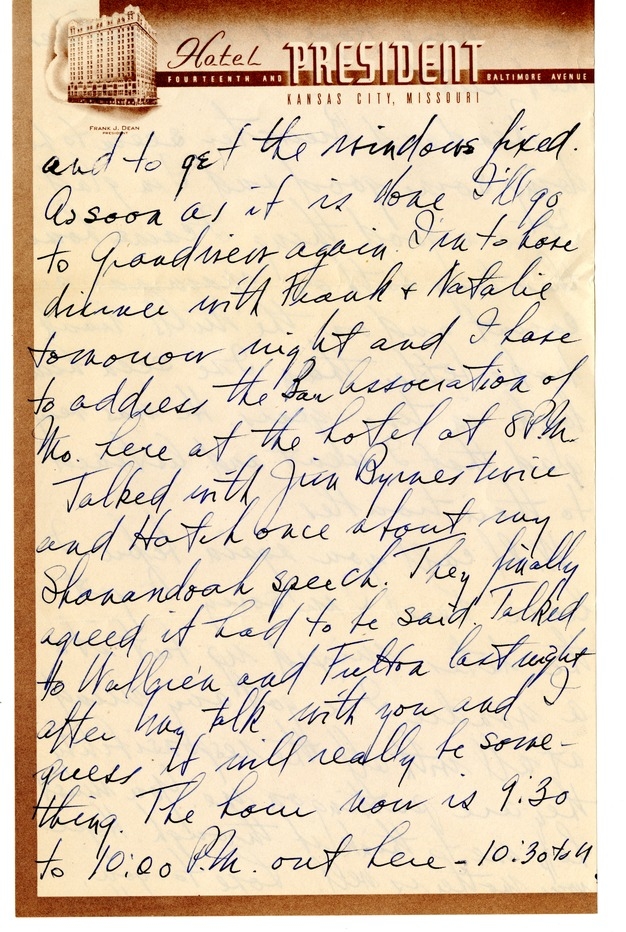 Hotel PRESIDENT
FOURTEENTH AND BALTIMORE AVENUE
KANSAS CITY, MISSOURI
FRANK J. DEAN
PRESIDENT
and to get the windows fixed.
As soon as it is done I'll go
to Grandview again. I'm to have
dinner with Frank & Natalie
tomorrow night and I have
to address the Bar Association of
Mo. here at the hotel at 8 P.M.
Talked with Jim Byrnes twice
and Hatch once about my
Shanandoah speech. They finally
agreed it had to be said. Talked
to Wallgren and Fulton last night
after my talk with you and I
guess it will really be some-
thing. The hour now is 9:30
to 10:00 P.M. out here - 10:30 to 11